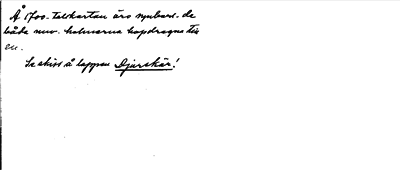 Å 1700-talskartan äro synbarl. de
båda nuv. holmarna hopdragna till
en.
Se skiss å lappen Djurskär!